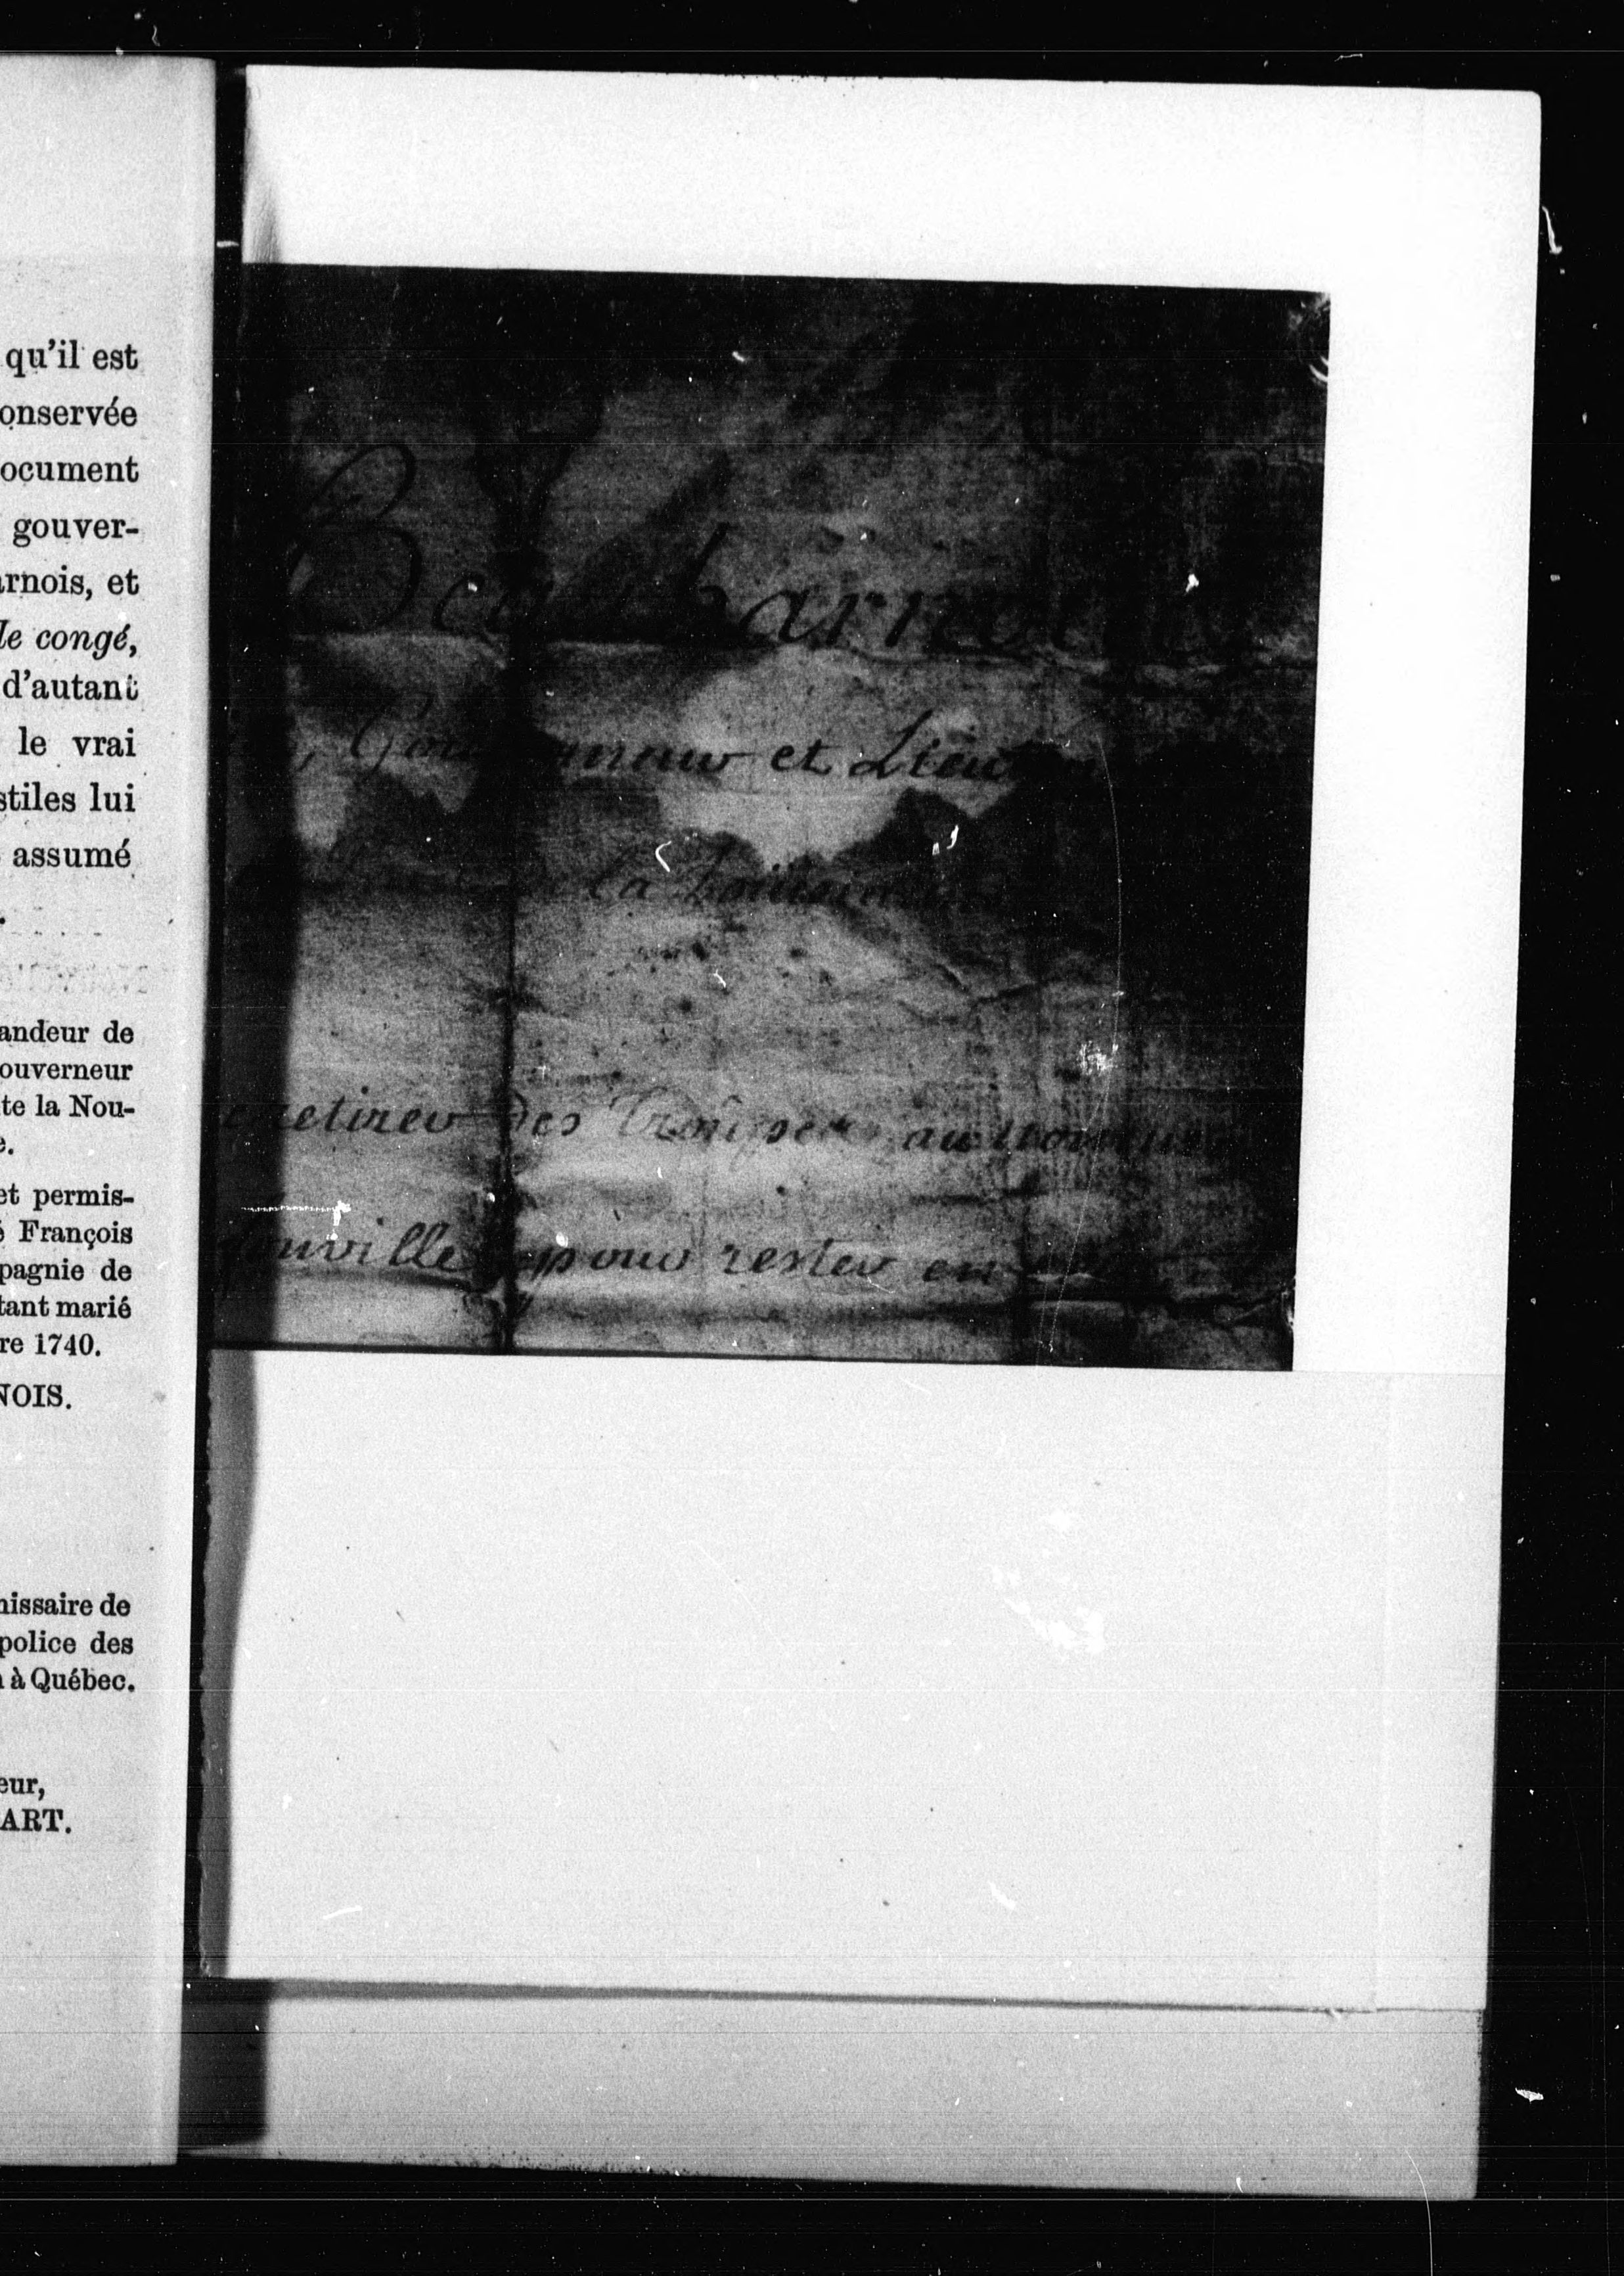 qu'il est
onservée
ocument
gouver-
arnois, et
le congé,
d'autant
le vrai
stiles lui
assumé
andeur de
ouverneur
te la Nou-
e.
et permis-
é François
pagnie de
tant marié
re 1740.
NOIS.
missaire de
police des
à Québec.
eur,
ART.
Beauharnois
et Lieu
la
retirer des Troupes au
ville pour rester en